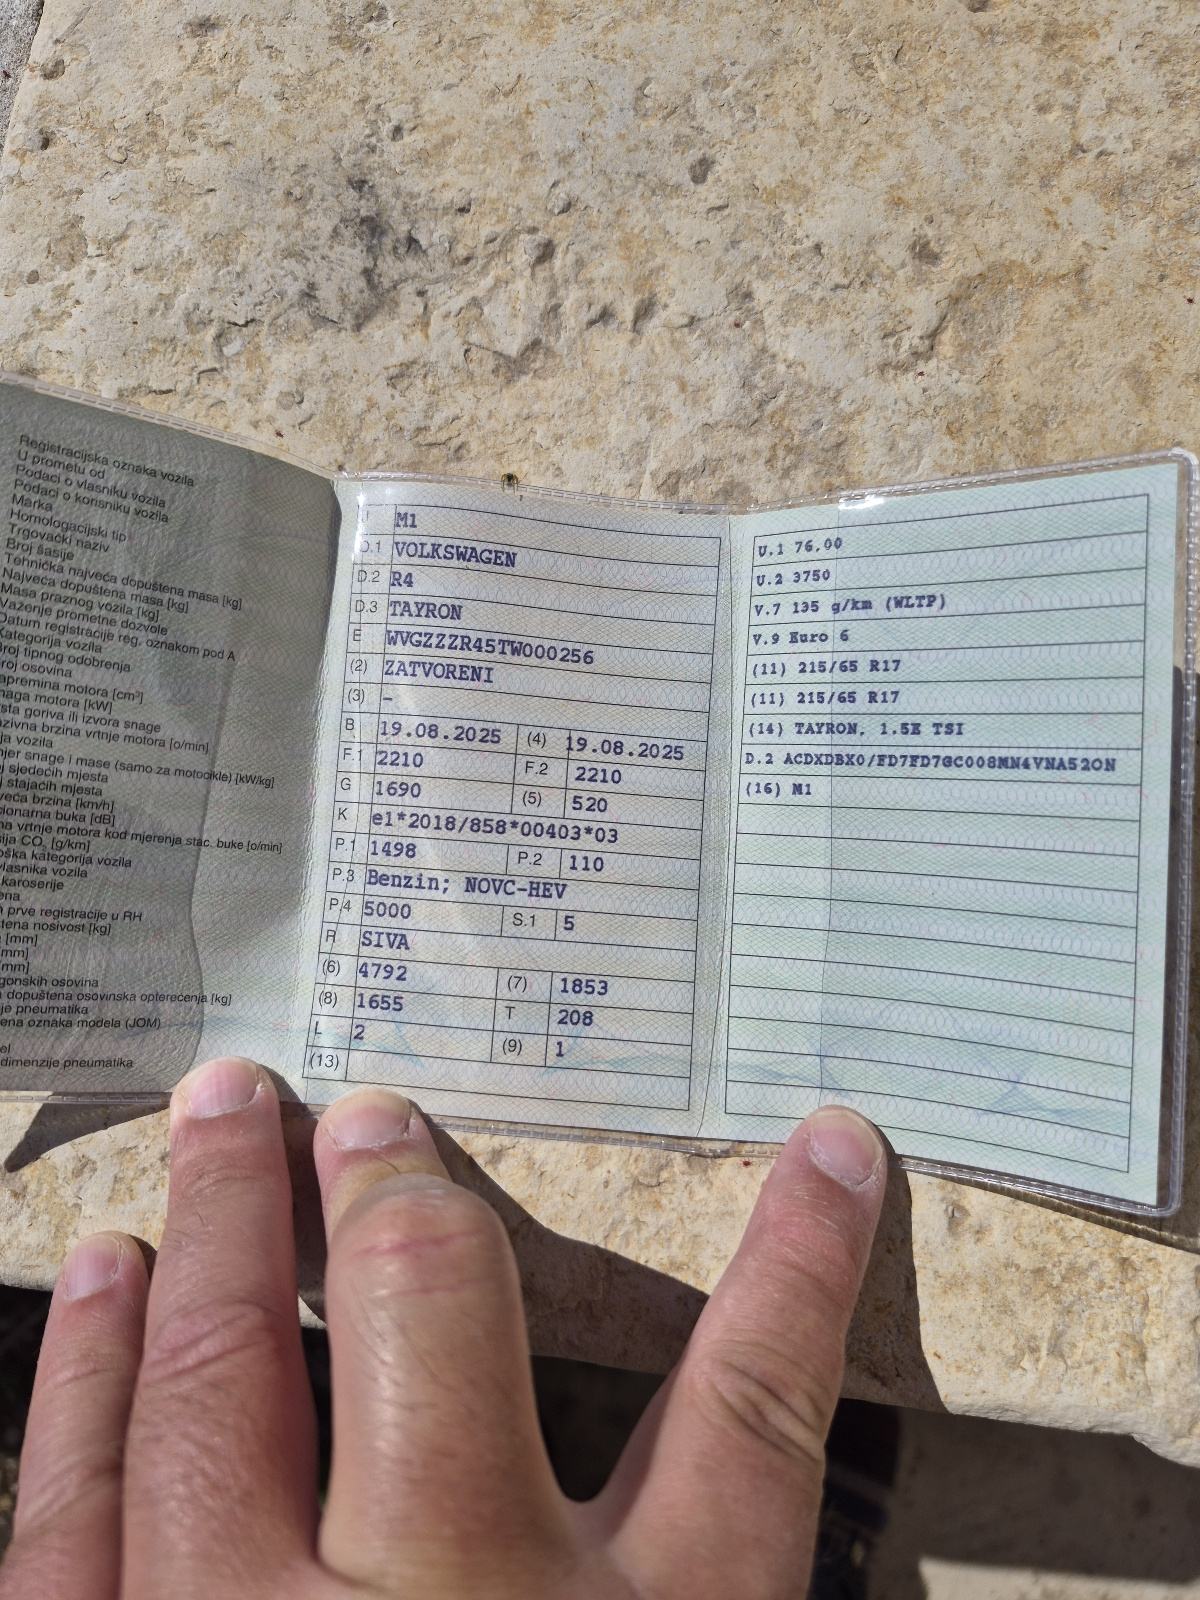 Registracijska oznaka vozila
U prometu od
Podaci o vlasniku vozila
Podaci o korisniku vozila
Marka
Homologacijski tip
Trgovački naziv
Broj šasije
Tehnička najveća dopuštena masa [kg]
Najveća dopuštena masa [kg]
Masa praznog vozila [kg]
Važenje prometne dozvole
Datum registracije reg. oznakom pod A
Kategorija vozila
tipnog odobrenja
osovina
motora [cm³]
motora [kW]
goriva ili izvora snage
brzina vrtnje motora [o/min]
vozila
snage i mase (samo za motocikle) [kW/kg]
sjedećih mjesta
stajaćih mjesta
brzina [km/h]
buka [dB]
vrtnje motora kod mjerenja stac. buke [o/min]
CO₂ [g/km]
kategorija vozila
vlasnika vozila
karoserije
prve registracije u RH
nosivost [kg]
[mm]
[mm]
[mm]
osovina
dopuštena osovinska opterećenja [kg]
pneumatika
oznaka modela (JOM)
dimenzije pneumatika
M1
D.1 VOLKSWAGEN
D.2 R4
D.3 TAYRON
E WVGZZZR45TW000256
(2) ZATVORENI
(3) -
B 19.08.2025 (4) 19.08.2025
F.1 2210 F.2 2210
G 1690 (5) 520
K e1*2018/858*00403*03
P.1 1498 P.2 110
P.3 Benzin; NOVC-HEV
P.4 5000 S.1 5
R SIVA
(6) 4792 (7) 1853
(8) 1655 T 208
L 2 (9) 1
(13)
U.1 76,00
U.2 3750
V.7 135 g/km (WLTP)
V.9 Euro 6
(11) 215/65 R17
(11) 215/65 R17
(14) TAYRON, 1.5E TSI
D.2 ACDXDBX0/FD7FD7GC008MN4VNA52ON
(16) M1